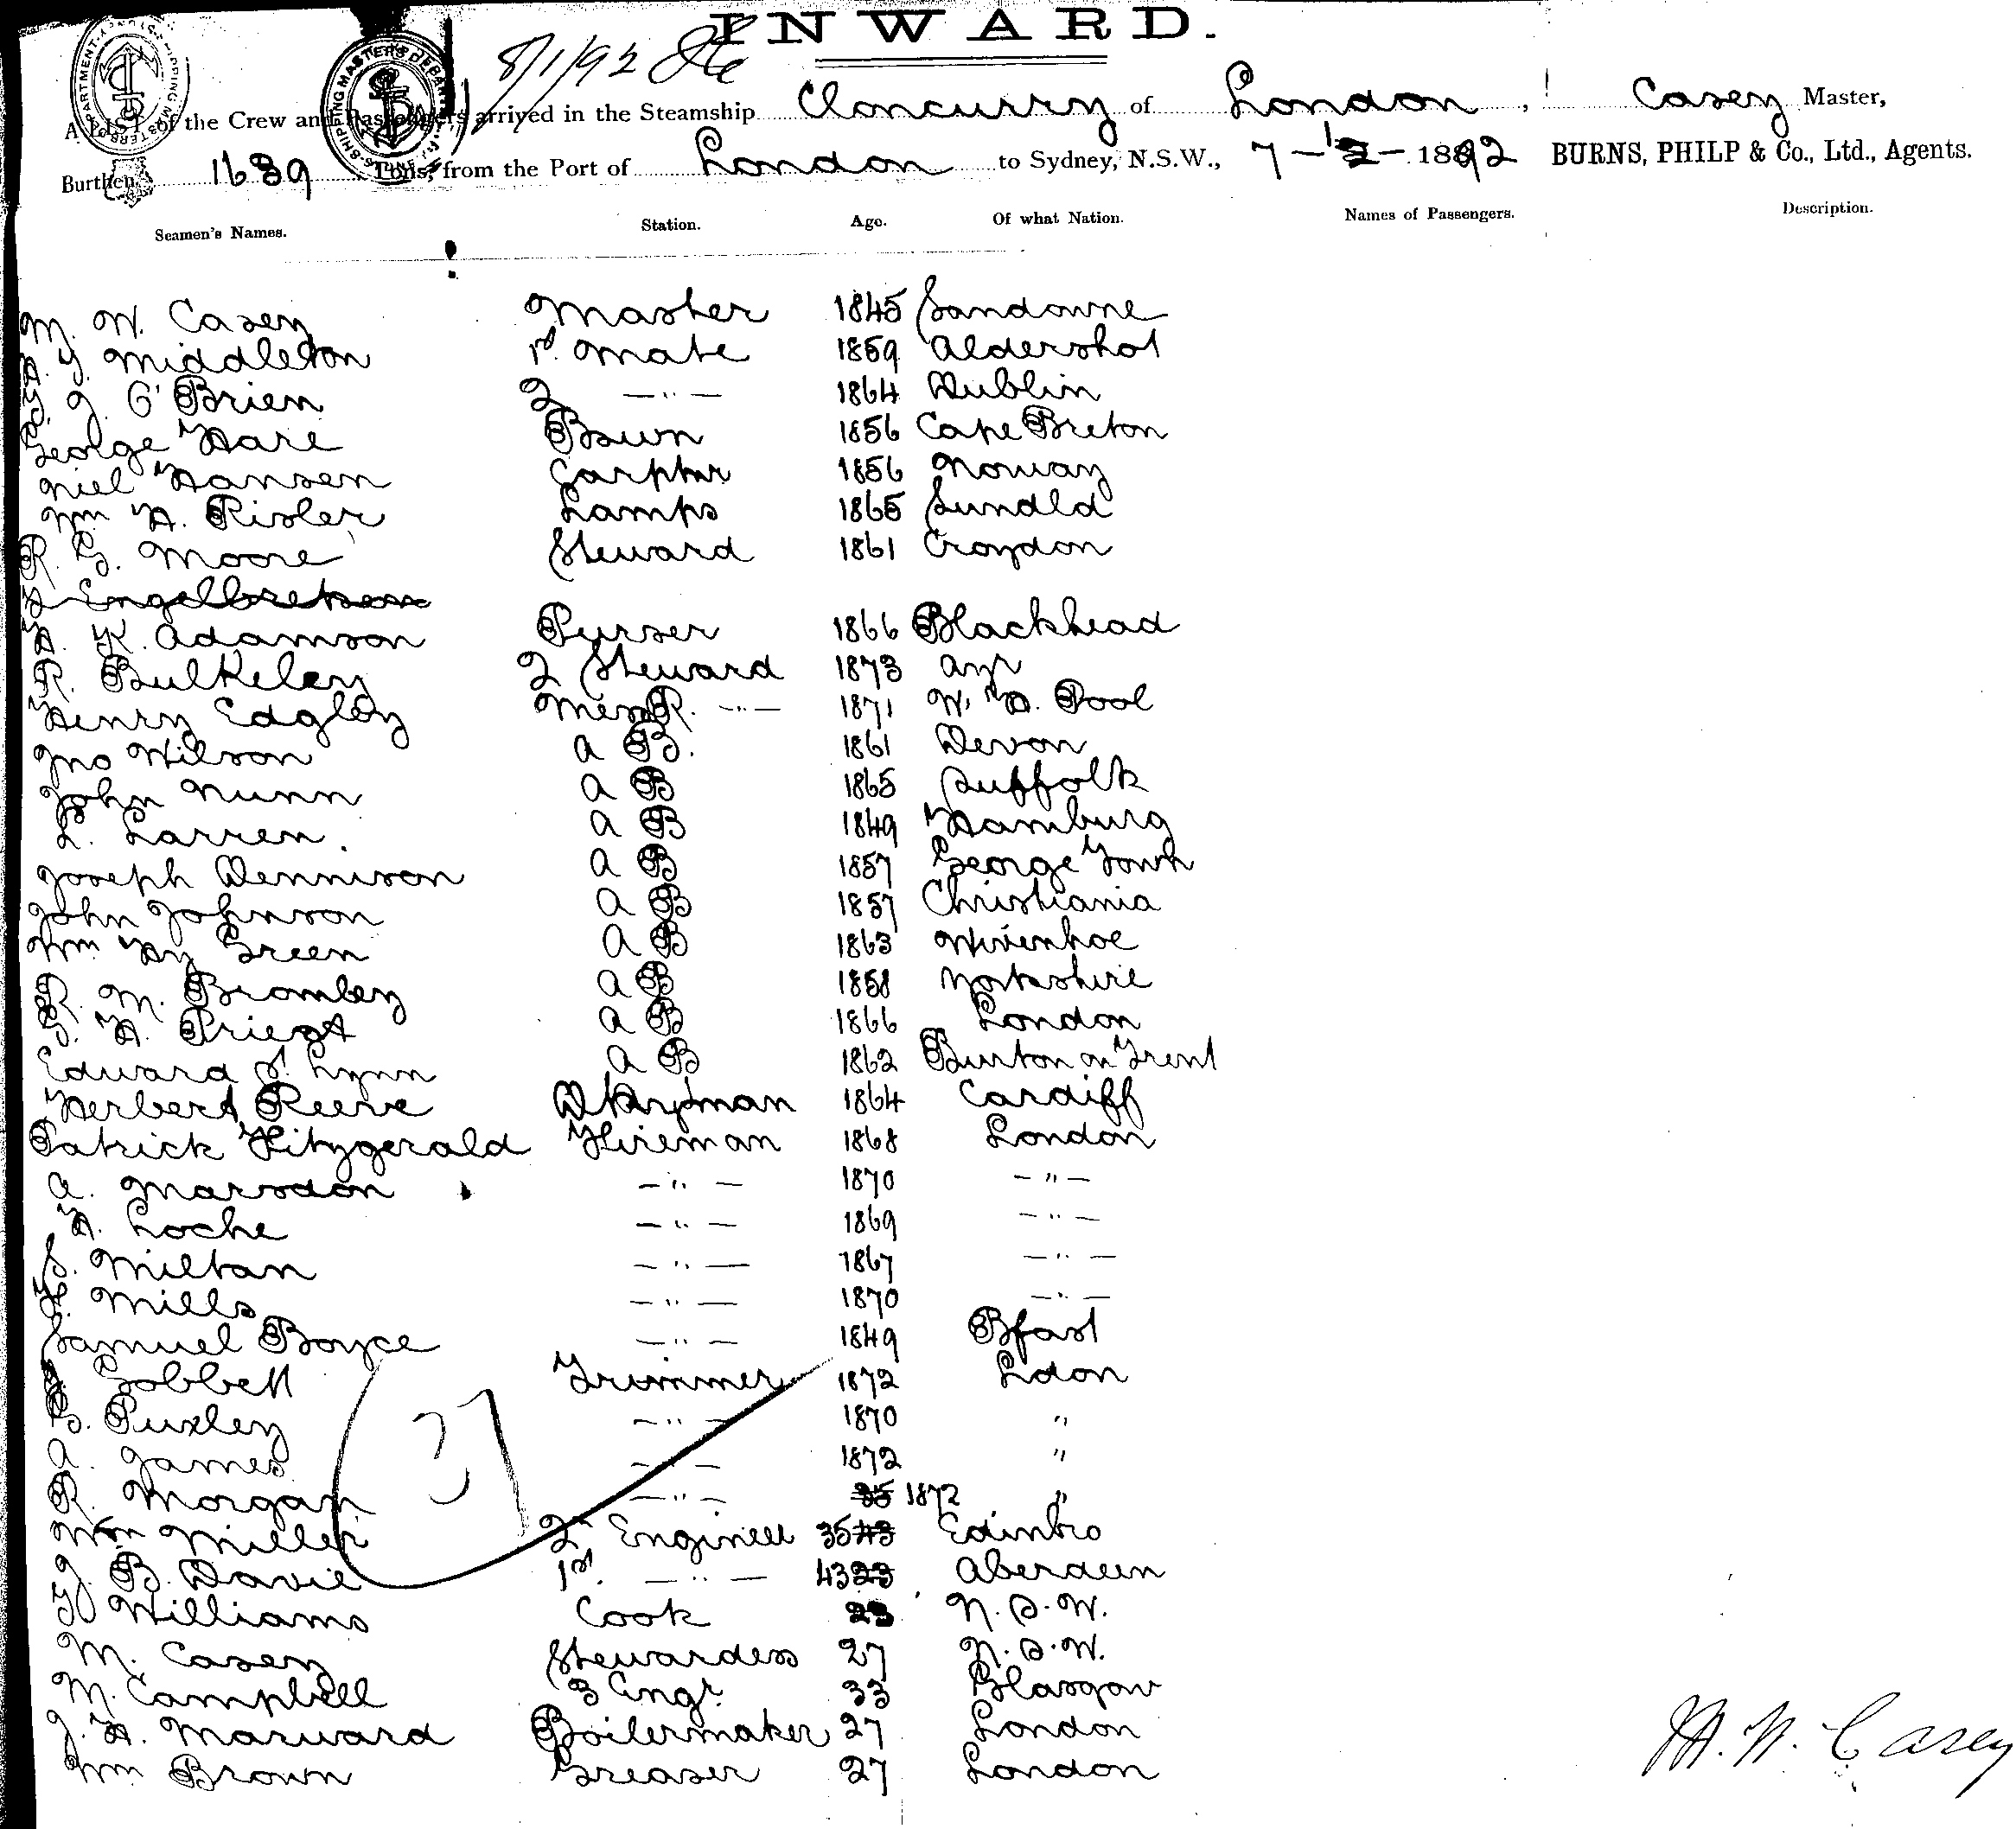 INWARD.
8/1/92
A LIST of the Crew and Passengers arrived in the Steamship Cloncurry of London, Casey Master,
Burthen 1639 Tons, from the Port of London to Sydney, N.S.W., 7 - 1 - 1892 BURNS, PHILP & Co., Ltd., Agents.
Seamen's Names. Station. Age. Of what Nation. Names of Passengers. Description.
M. W. Casey Master 1845 Sandowne
Middleton 1st. Mate 1859 Aldershot
O'Brien 2 —"— 1864 Dublin
George Hare Bswn 1856 Cape Breton
Niel Hansen Carpntr 1856 Norway
Wm H. Risler Lamps 1865 Sundld
R. G. Moore Steward 1861 Croydon
Engelbretsen
H. K. Adamson Purser 1866 Blackhead
R. Bulkeley 2 Steward 1873 Ayr
Henry Edgley Mess R. —"— 1871 W. H. Pool
Jno Wilson A B. 1861 Devon
John Nunn A B 1865 Suffolk
L. Larren. A B 1849 Hamburg
Joseph Dennison A B 1857 George Town
John Johnson A B 1857 Christiania
Wm Hy Green A B 1863 Wivenhoe
R. M. Bromley A B 1858 Yorkshire
G. H. Priest A B 1866 London
Edward J. Lynn A B 1862 Burton on Trent
Herbert Reeve Dkeyman 1864 Cardiff
Patrick Fitzgerald Fireman 1868 London
A. Marsdon —"— 1870 —"—
H. Loche —"— 1869 —"—
S. Miltan —"— 1867 —"—
F. Mills —"— 1870 —"—
Samuel Boyce —"— 1849 Bfast
J. Gobbett Trimmer 1872 Ldon
G. Puxley —"— 1870 "
A. James —"— 1872 "
R. Morgan —"— 35 1872 "
Wm Miller 2nd Engineer 35 43 Edinbro
J. B. Davie 1st. —"— 43 23 Aberdeen
Williams Cook 23 N.S.W.
M. Casey Stewardess 27 N.S.W.
M. Campbell 3 Engr. 33 Glasgow
J. H. Marward Boilermaker 27 London
Wm Brown Greaser 27 London
M. W. Casey